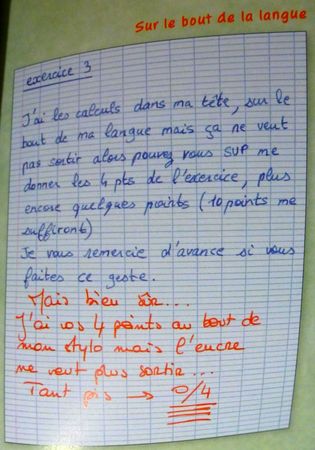 Sur le bout de la langue
exercice 3
J'ai les calculs dans ma tête, sur le
bout de ma langue mais ça ne veut
pas sortir alors pouvez vous SVP me
donner les 4 pts de l'exercice, plus
encore quelques points (10 points me
suffiront)
Je vous remercie d'avance si vous
faites ce geste.
Mais bien sûr...
J'ai vos 4 points au bout de
mon stylo mais l'encre
ne veut plus sortir...
Tant pis → 0/4